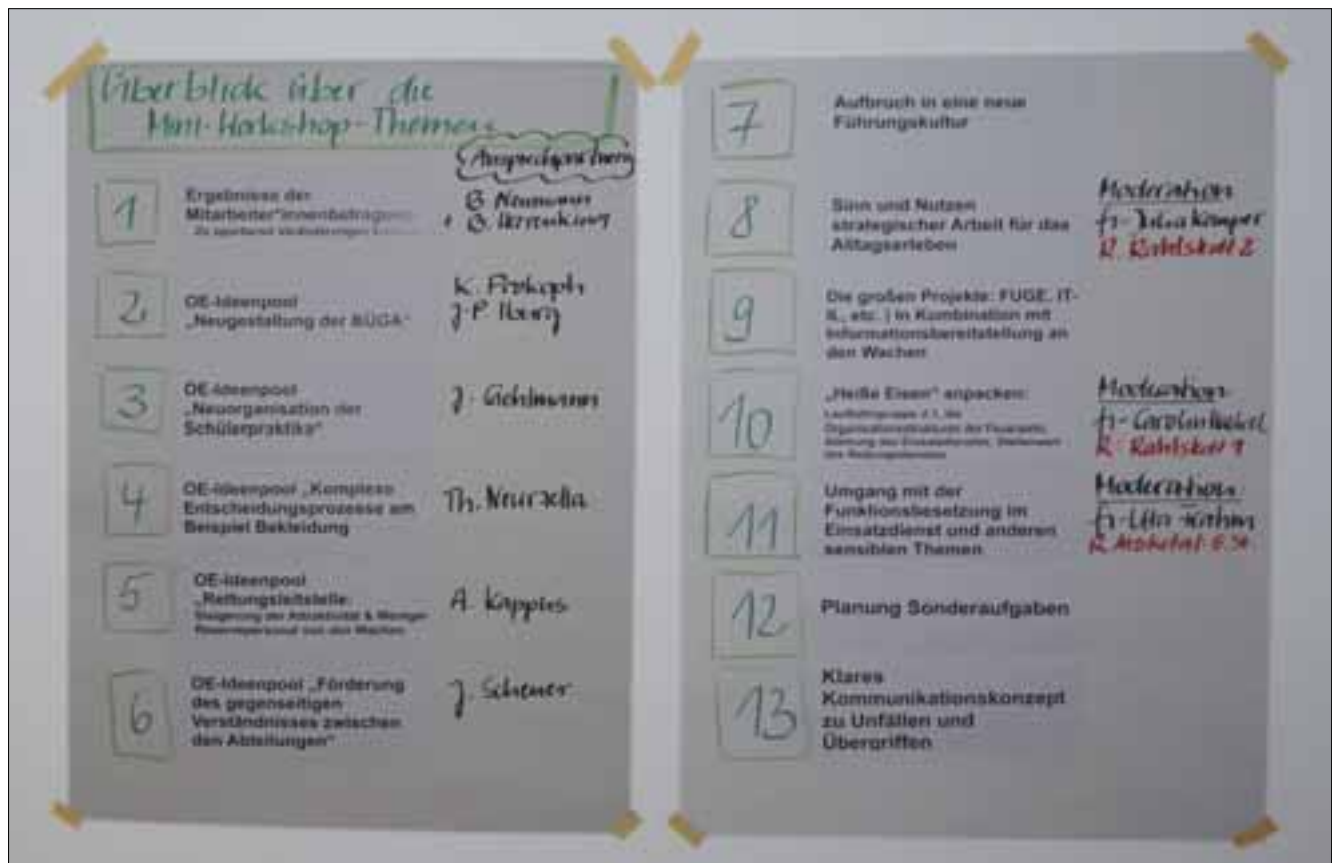 Überblick über die
Mini-Workshop-Themen
Ansprechpartner
1
Ergebnisse der
Mitarbeiter*innenbefragung
B. Neumann
+ B.
2
OE-Ideenpool
„Neugestaltung der BÜGA“
K. Prokoph
J-P. Iburg
3
OE-Ideenpool
„Neuorganisation der
Schülerpraktika“
J.
4
OE-Ideenpool „Komplexe
Entscheidungsprozesse am
Beispiel Bekleidung
Th.
5
OE-Ideenpool
„Rettungsleitstelle:
Steigerung der Attraktivität & Weniger
Reservepersonal von den Wachen
A. Kappus
6
OE-Ideenpool „Förderung
des gegenseitigen
Verständnisses zwischen
den Abteilungen“
J. Scheuer
7
Aufbruch in eine neue
Führungskultur
8
Sinn und Nutzen
strategischer Arbeit für das
Alltagserleben
Moderation
fr. Julia Kamper
R. Rahlskat 2
9
Die großen Projekte: FUGE, IT-
II., etc. ) in Kombination mit
Informationsbereitstellung an
den Wachen
10
„Heiße Eisen“ anpacken:
Laufbahngruppe 2.1, die
Organisationsstrukturen der Feuerwehr,
Stärkung des Einsatzdienstes, Stellenwert
des Rettungsdienstes
Moderation
fr. Carolin
R. Rahlskat 1
11
Umgang mit der
Funktionsbesetzung im
Einsatzdienst und anderen
sensiblen Themen
Moderation
fr.
R.
12
Planung Sonderaufgaben
13
Klares
Kommunikationskonzept
zu Unfällen und
Übergriffen